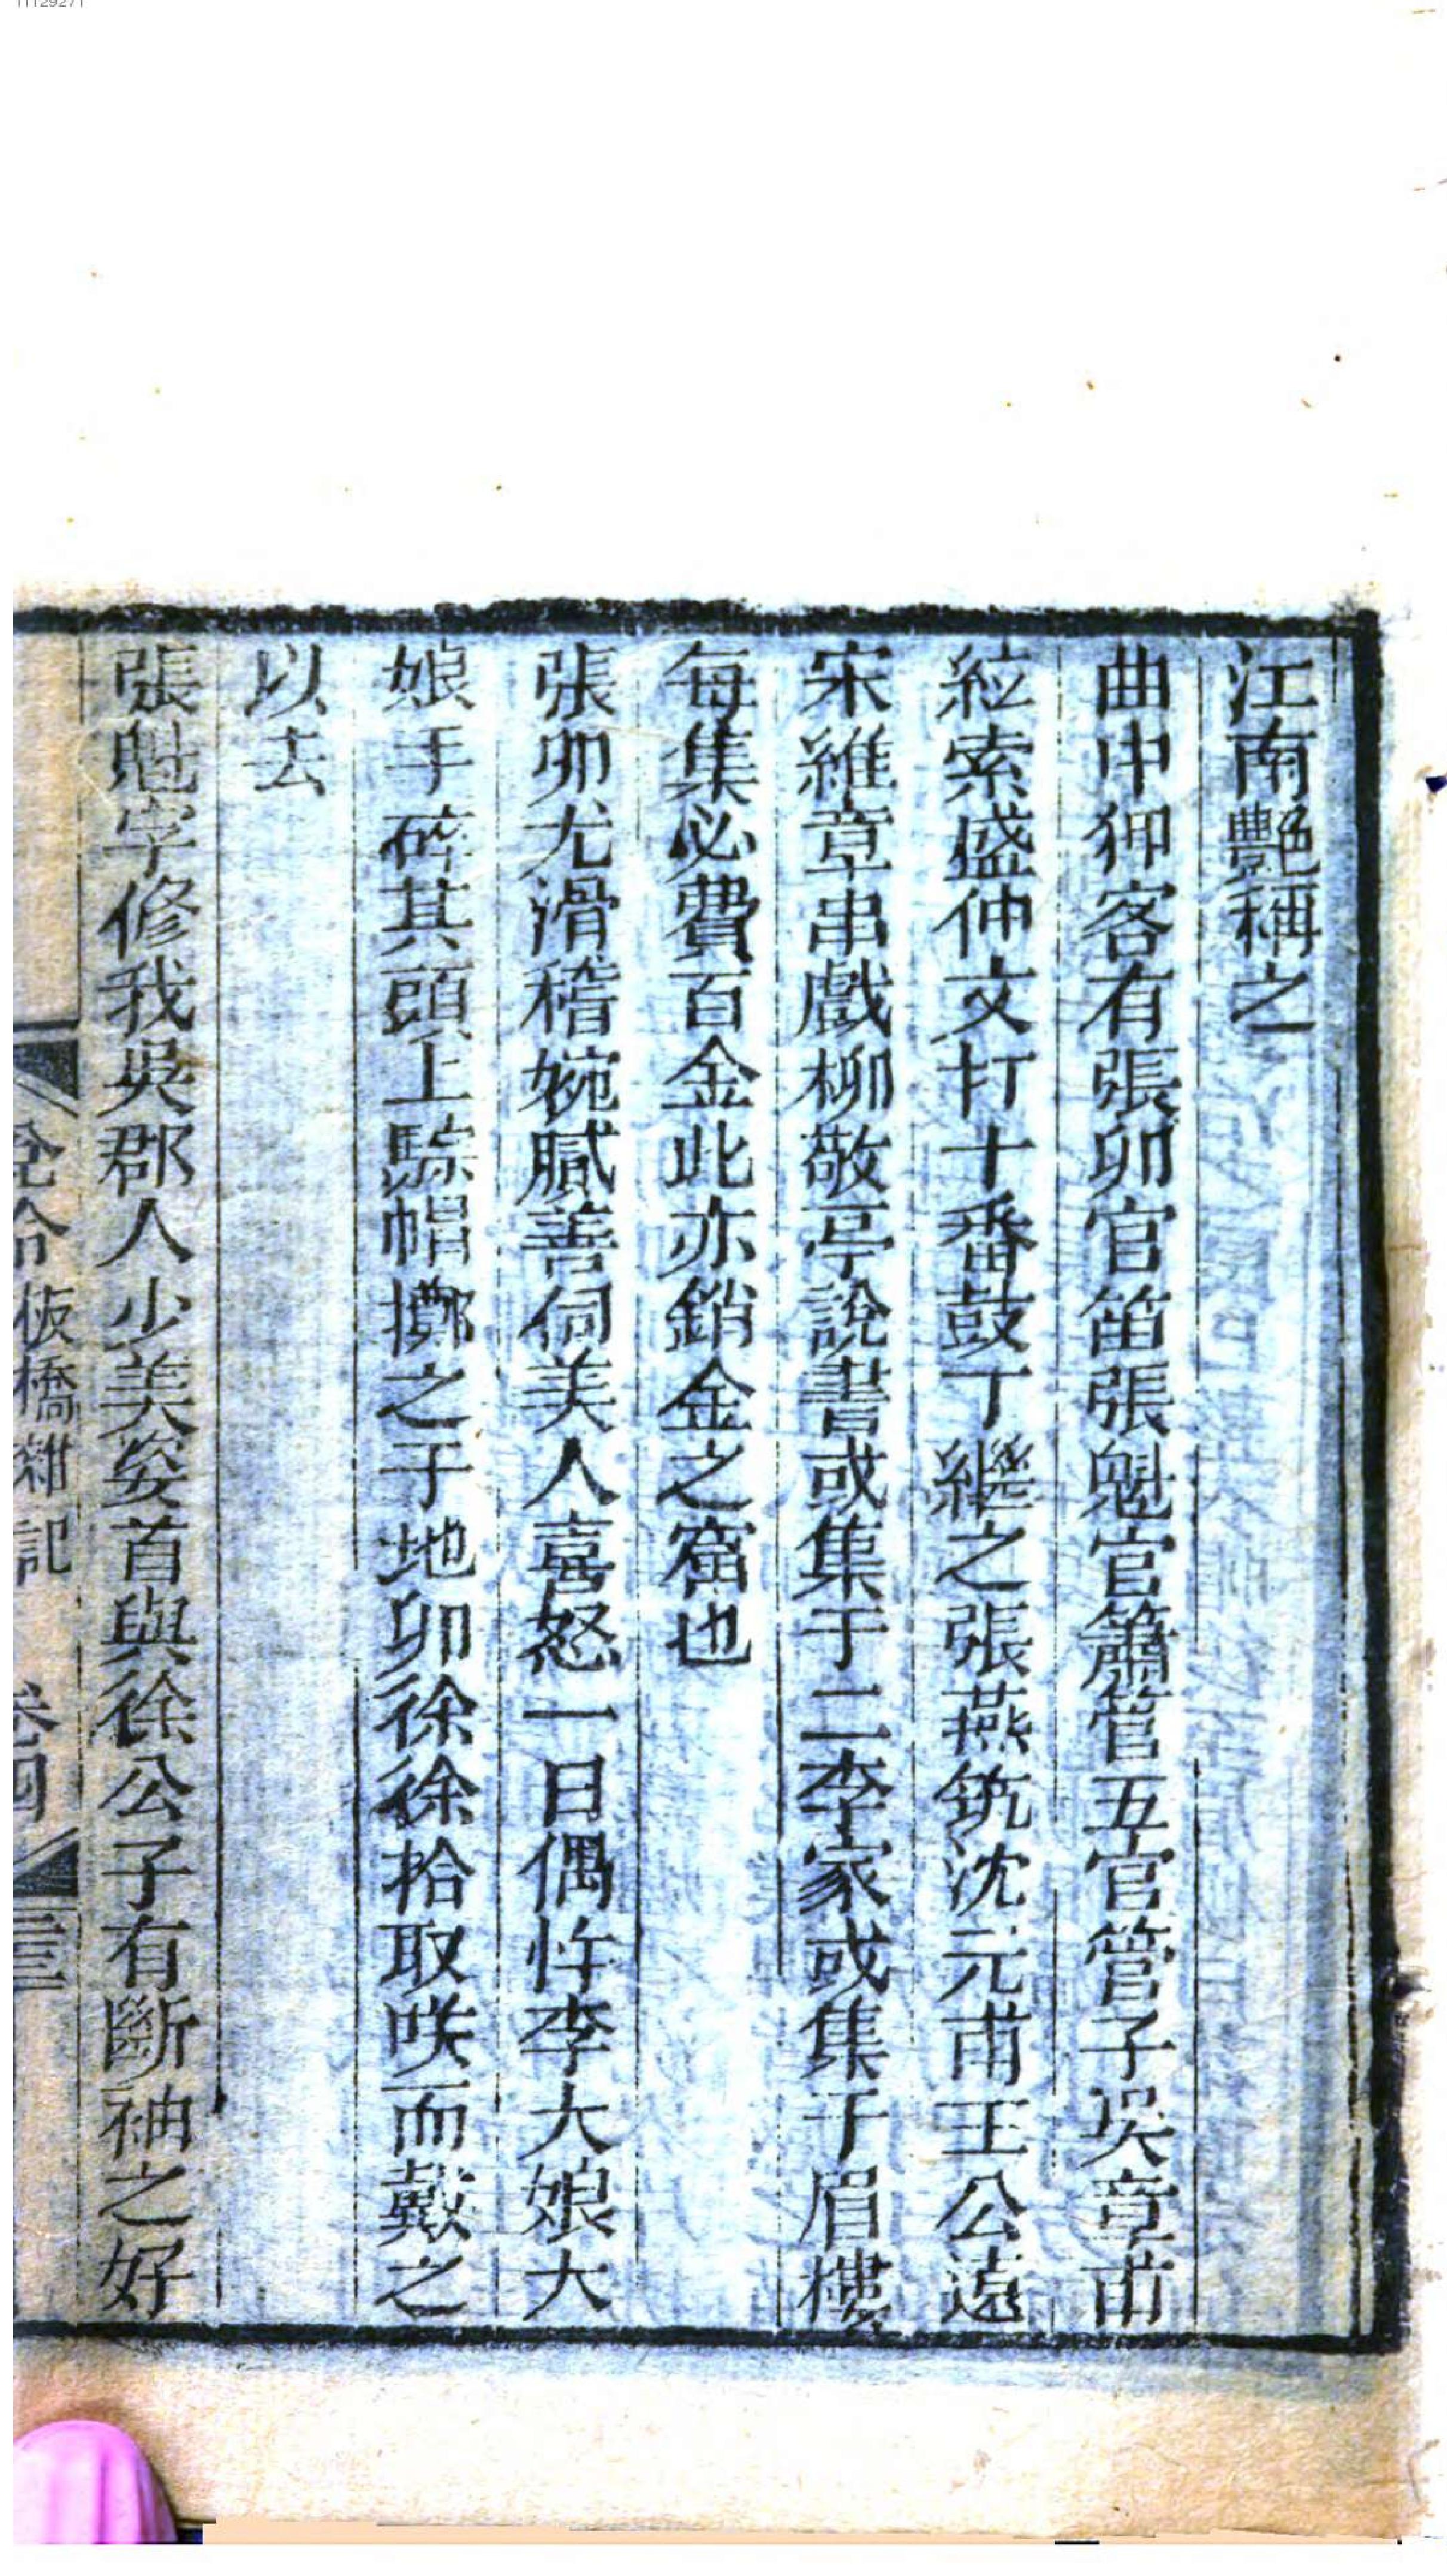 江南艷稱之
曲中狎客有張卯官笛張魁官簫管五官管子吳章甫
絃索盛仲文打十番鼓丁繼之張燕筑沈元甫王公遠
宋維章串戲柳敬亭說書或集于二李家或集于眉樓
每集必費百金此亦銷金之窟也
張卯尤滑稽婉膩善伺美人喜怒一日偶忤李大娘大
娘手碎其頭上騌帽擲之于地卯徐徐拾取咲而戴之
以去
張魁字修我吳郡人少美姿首與徐公子有斷袖之好
板橋雜記 卷四